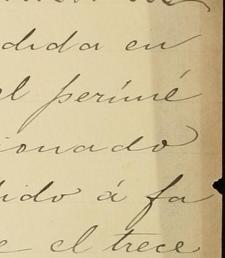 dida en
el perímé
ionado
dido á fa
e el trece